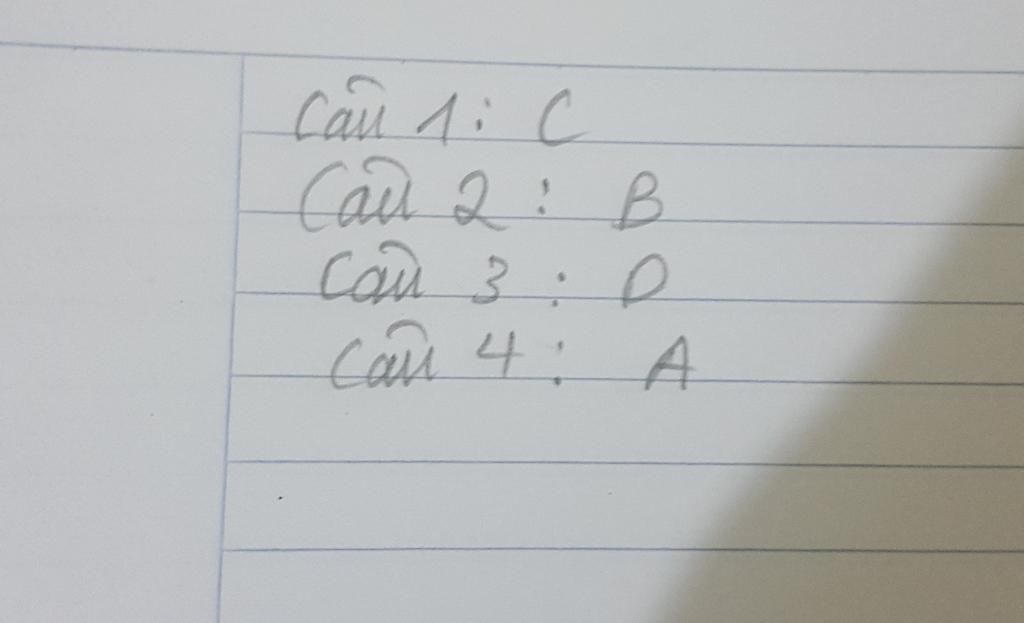 Câu 1: C
Câu 2: B
Câu 3: D
Câu 4: A